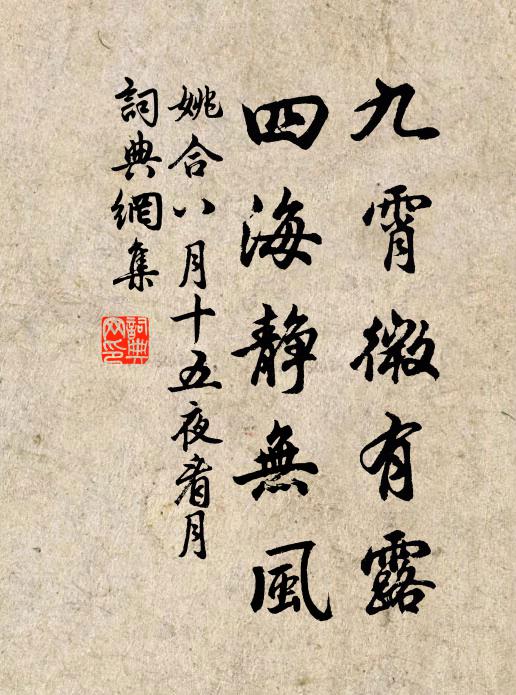 九霄微有露
四海静無風
姚合八月十五夜看月
詞典網集
詞典
网印